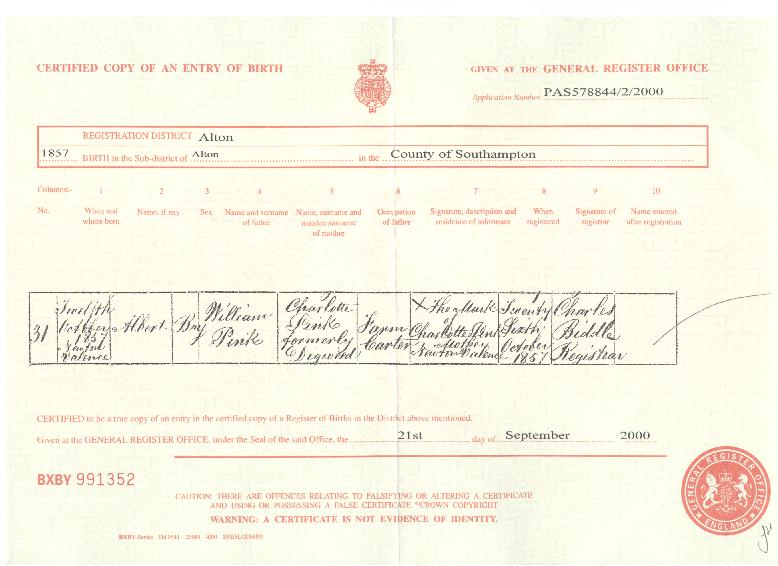 CERTIFIED COPY OF AN ENTRY OF BIRTH
GIVEN AT THE GENERAL REGISTER OFFICE
Application Number PAS578844/2/2000
REGISTRATION DISTRICT Alton
1857 BIRTH in the Sub-district of Alton in the County of Southampton
Columns:- 1 2 3 4 5 6 7 8 9 10
No. When and where born Name, if any Sex Name and surname of father Name, surname and maiden surname of mother Occupation of father Signature, description and residence of informant When registered Signature of registrar Name entered after registration
31
Twelfth
October
1857
Valence
Albert
Boy
William
Pink
Charlotte
Pink
formerly
Farm
Carter
X The Mark
of
Charlotte Pink
Mother
Newton Valence
Twenty
Sixth
October
1857
Charles
Biddle
Registrar
CERTIFIED to be a true copy of an entry in the certified copy of a Register of Births in the District above mentioned.
Given at the GENERAL REGISTER OFFICE, under the Seal of the said Office, the 21st day of September 2000
BXBY 991352
CAUTION: THERE ARE OFFENCES RELATING TO FALSIFYING OR ALTERING A CERTIFICATE
AND USING OR POSSESSING A FALSE CERTIFICATE ©CROWN COPYRIGHT
WARNING: A CERTIFICATE IS NOT EVIDENCE OF IDENTITY.
BXBY Series
GENERAL REGISTER OFFICE
ENGLAND